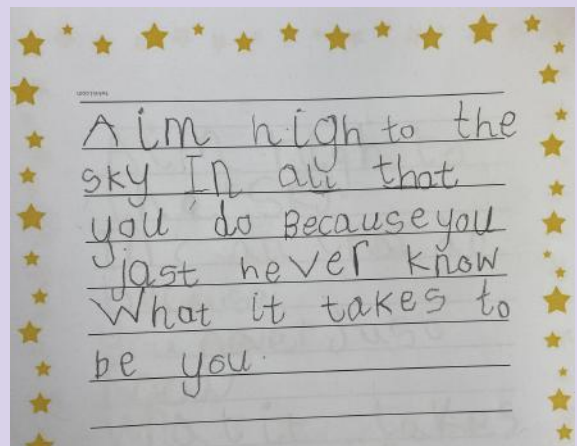 Aim high to the
sky In all that
you do Because you
jast never know
What it takes to
be you.